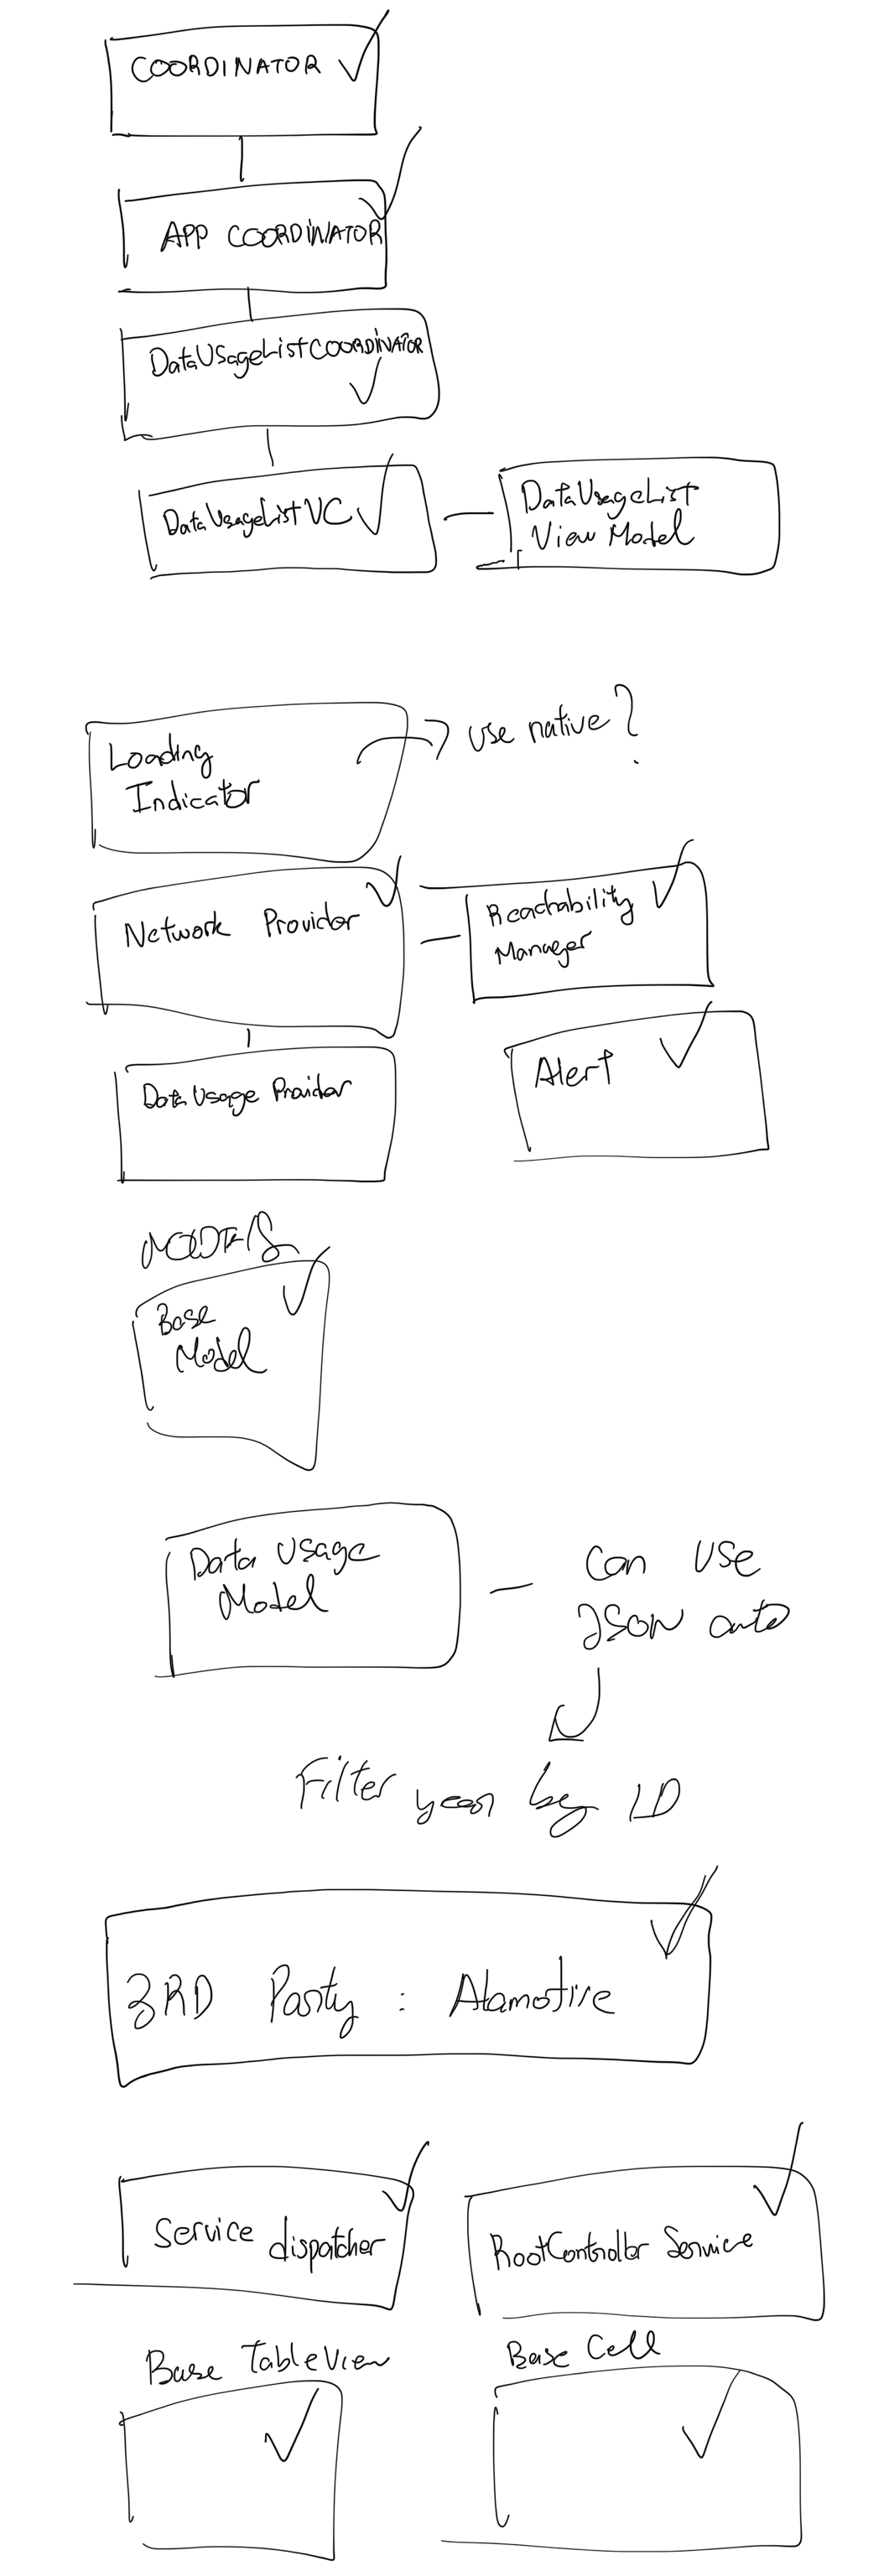 COORDINATOR
APP COORDINATOR
DataUsageListCOORDINATOR
DataUsageListVC
DataUsageList
View Model
Loading
Indicator
use native?
Network Provider
Reachability
Manager
Data Usage Provider
Alert
MODELS
Base
Model
Data Usage
Model
Can use
JSON auto
Filter year by ID
3RD Party : Alamofire
Service dispatcher
RootController Service
Base TableView
Base Cell